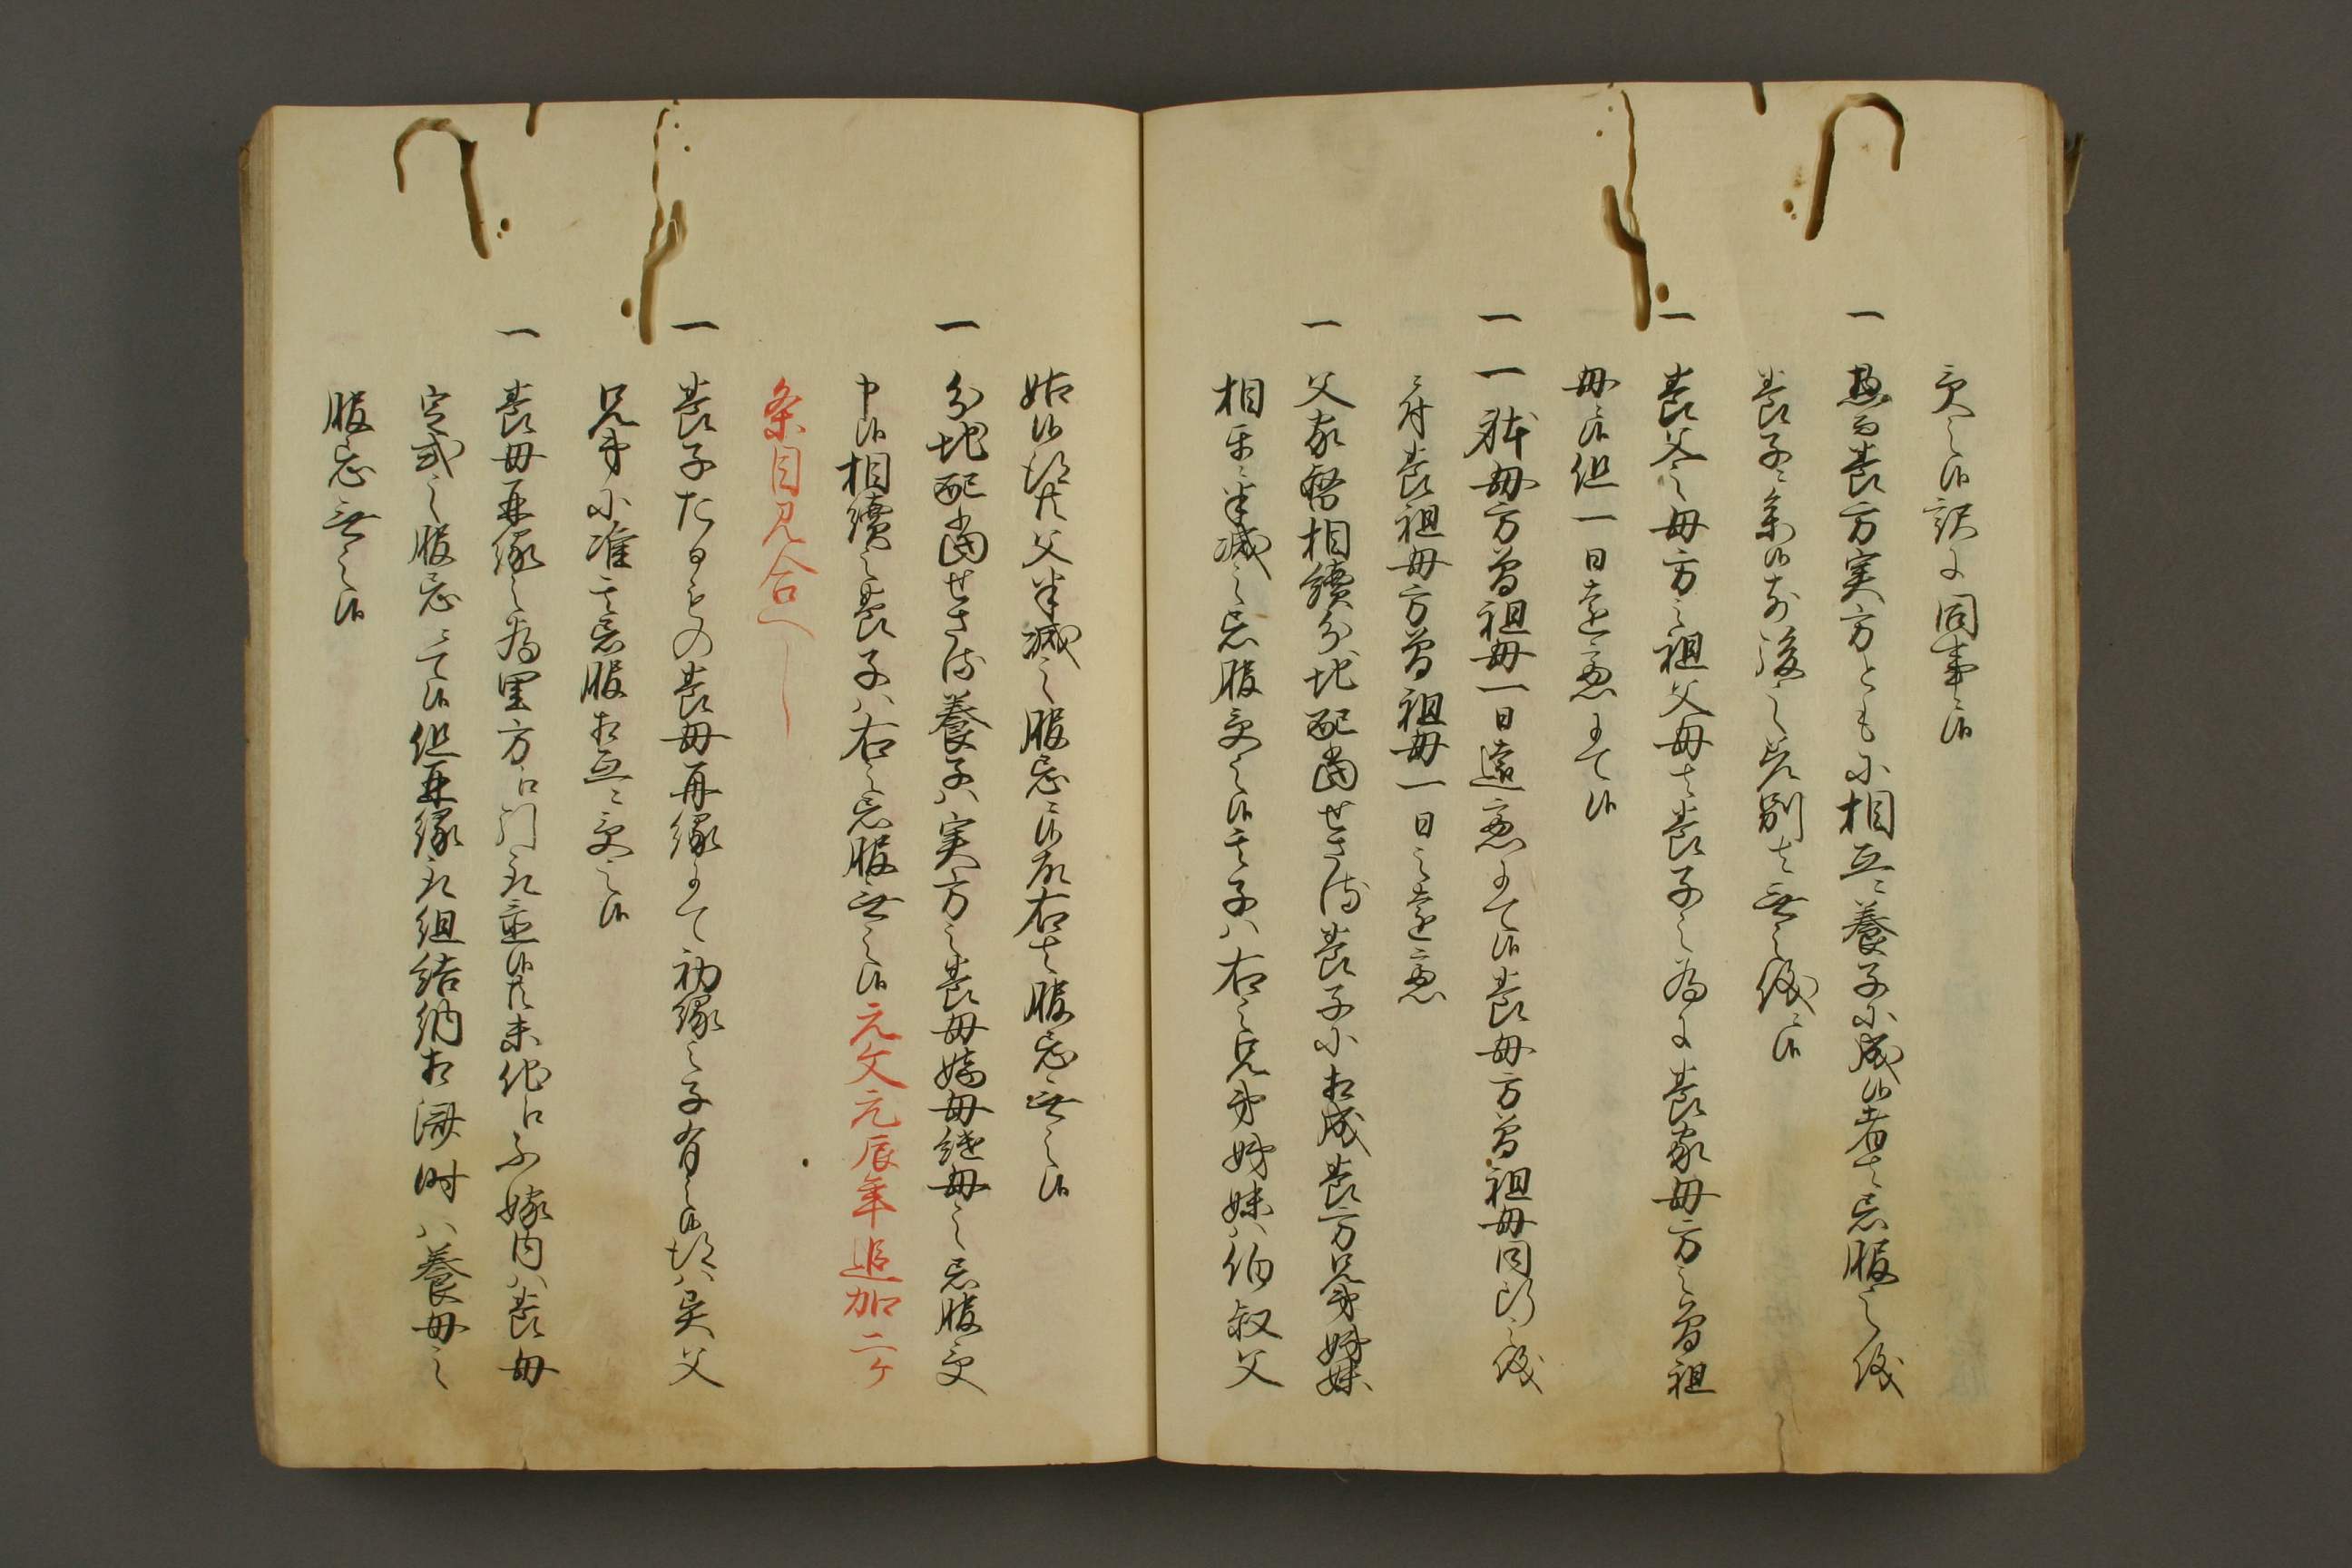 受之候訳ニ同事ニ候
一 惣而養方実方とも小相互ニ養子小成候者者忌服之儀
養子ニ参候前後之差別者無之儀ニ候
一 養父之母方之祖父母者養子之為ニ養家母方之曽祖
母ニ候但一日遠慮ニて候
一 一 母方曽祖母一日遠慮ニて候養母方曽祖母同断之儀
ニ付養祖母方曽祖母一日之遠慮
一 父家督相続分地配当せさる養子小相成養方兄弟姉妹
相互ニ半減之忌服受之候其子ハ右之兄弟姉妹ハ伯叔父
姑候得共父半減之服忌ニ候故右者服忌無之候
一 分地配当せさる養子ハ実方之養母嫡母継母之忌服受
申候相續之養子ハ右之忌服無之候元文元辰年追加二ケ
条目見合へし
一 養子たるもの養母再縁ニて初縁之子有之候得ハ異父
兄弟小准其忌服相互ニ受之候
一 養母再縁之為里方江引取置候共未他江不嫁内ハ養母
定式之服忌ニて候但再縁取組結納相済時ハ養母之
服忌無之候